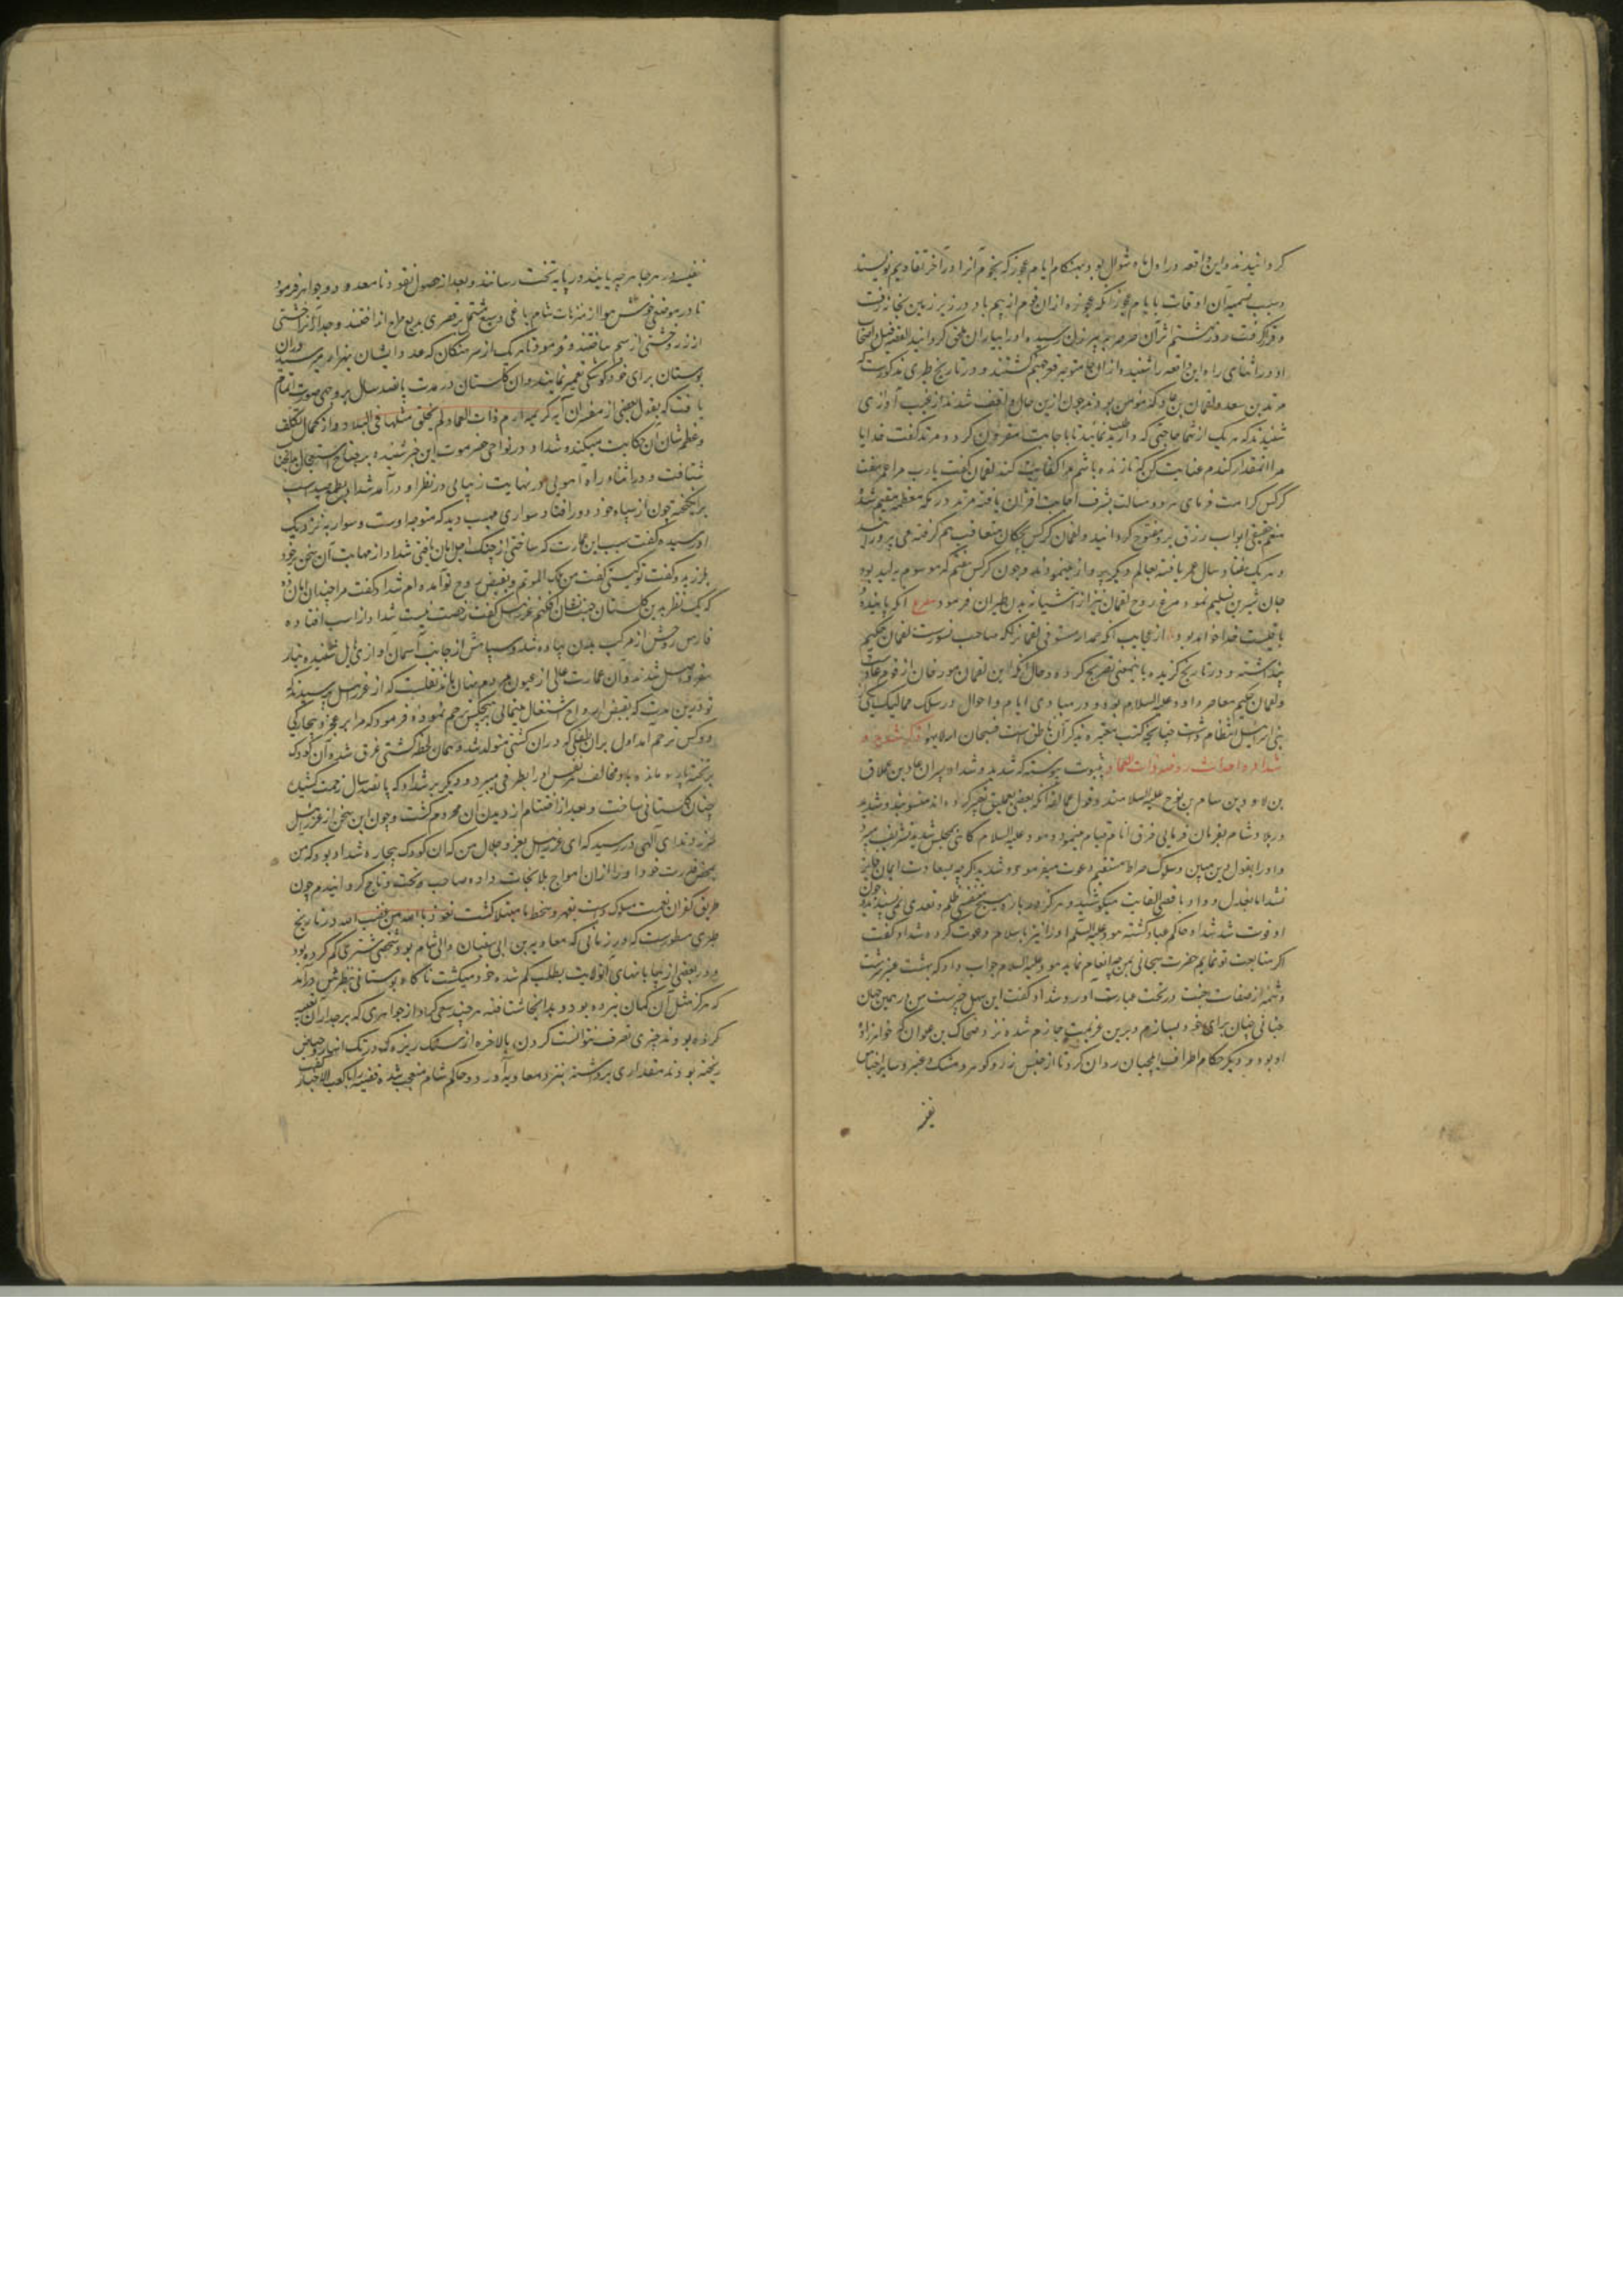 کردانیدند و این واقعه در اول ماه شوال بود بهنکام ایام عجوز که نجوم آنرا در آخر تقاویم نویسند
و سبب تسمیه آن اوقات بایام عجوز آنکه عجوزه از ان قوم از بیم باد در زیر زمین بخانه رفت
و قرار گرفت و روز هشتم اثر آن صرصر بدو رسیده او را بیاران ملحق کردانید القصه قیل و اصحاب
او در اثنای راه این واقعه را شنیده متوجه قعر جهنم کشتند و در تاریخ طبری مذکورست که
مرثد بن سعد و لقمان بن عاد که مؤمن بودند چون ازین حال واقف شدند از غیب آوازی
شنیدند که هر یک از شما حاجتی که دارید طلب نمائید تا باجابت مقرون کردد مرثد کفت خدایا
مرا آنمقدار کندم عنایت کن که تا زنده باشم مرا کفایت کند لقمان کفت یا رب مرا عمر هفت
کرکس کرامت فرمای هر دو مسالت بشرف اجابت اقتران یافته مرثد در مکه معظمه مقیم شد
منعم حقیقی ابواب رزق برو مفتوح کردانید و لقمان کرکس بچکان متعاقب هم کرفته می پرورانید
و هر یک هفتاد سال عمر یافته بعالم دیکر پرواز مینمودند و چون کرکس هفتم که موسوم به لبد بود
جان شیرین تسلیم نمود مرغ روح لقمان نیز از آشیانه بدن طیران فرمود مصرع آنکه پاینده
باقیست خدا خواهد بود از عجایب آنکه حمدالله مستوفی لقمانرا که صاحب نسورست لقمان حکیم
پنداشته و در تاریخ کزیده باینمعنی تصریح کرده و حال آنکه این لقمان مورخان از قوم عادست
و لقمان حکیم معاصر داود علیه السلام بوده و در مبادی ایام و احوال در سلک ممالیک یکی
بنی اسرائیل انتظام داشت چنانچه کتب معتبره بذکر آن ناطق است فسبحان من لا یسهو ذکر شدید و
شداد و احداث روضه ذات العماد بثبوت پیوسته که شدید و شداد پسران عاد بن عملاق
بن لاود بن سام بن نوح علیه السلام بودند و قول عمالقه که بعضی بعملیق تعبیر کرده اند منسوبند و شدید
در بلاد شام بفرمان فرمایی فرق انام قیام مینمود و هود علیه السلام کاهی بمجلس شدید تشریف میبرد
و او را بقبول دین مبین و سلوک صراط مستقیم دعوت میفرمود و شدید اکرچه بسعادت ایمان فایز
نشد اما بعدل و داد باقصی الغایت میکوشید و هرکز در باره هیچ شخصی ظلم و تعدی نمی پسندید چون
او فوت شد شداد حاکم عباد کشته هود علیه السلم او را نیز باسلام دعوت کرده شداد کفت
اکر متابعت تو نمایم حضرت سبحانی بمن چه انعام نماید هود علیه السلام جواب داد که بهشت عنبر سرشت
و شمه از صفات جنت در تحت عبارت آورد شداد کفت این سهل چیزیست من در همین جهان
جنانی چنان برای خود بسازم و برین عزیمت جازم شده نزد ضحاک بن علوان که خواهرزاده
او بود و دیکر حکام اطراف ایلچیان روان کرد تا از جنس زر و کوهر و مشک و عنبر و سایر اجناس
نفیسه
نفیسه در هر جا هر چه یابند در پایه تخت رسانند و بعد از حصول نقود نامعدود و جواهر فرمود
تا در موضعی خوش هوا از منتزهات شام باغی وسیع مشتمل بر قصری بدیع طرح انداختند و جدار آنرا خشتی
از زر و خشتی از سیم ساختند و فرمود تا هر یک از سرهنکان که عدد ایشان بهزار میرسید دران
بوستان برای خود کوشکی تعمیر نمایند و ان کلستان در مدت پانصد سال بر وجهی صورت اتمام
یافت که بقول بعضی از مفسران آیه کریمه ارم ذات العماد لم یخلق مثلها فی البلاد از کمال تکلف
و عظم شان آن حکایت میکند و شداد در نواحی حضرموت این خبر شنیده بر جناح استعجال بدانجانب
شتافت و در اثناء راه آهویی در نهایت زیبایی در نظر او درآمد شداد بطمع صید اسب
برانکیخته چون از سپاه خود دور افتاد سواری مهیب دید که متوجه اوست و سوار به نزدیک
او رسیده کفت سبب این عمارت که ساختی از چنک اجل امان یافتی شداد از مهابت آن سخن برخود
بلرزید و کفت تو کیستی کفت من ملک الموتم و بقبض روح تو آمده ام شداد کفت مرا چندان امان ده
که یک نظر بدین کلستان جنت نشان افکنم عزرائیل کفت رخصت نیست شداد از اسب افتاده
فارس روحش از مرکب بدن پیاده شد و سپاهش از جانب آسمان آوازی هایل شنیده بیکبار
بمقر اصل شدند و آن عمارت عالی از عیون مردم پنهان ماند نقلست که از عزرائیل پرسیدند که
تو درین مدت که بقبض ارواح اشتغال مینمائی بر هیچکس رحم نموده فرمود که مرا بر عجز و بیچارکی
دو کس ترحم آمد اول بران طفلی که دران کشتی متولد شد و همان لحظه کشتی غرق شده آن کودک
بر تخته پاره مانده باد مخالف هر نفس او را بطرفی میبرد و دیکری بر شداد که پانصد سال زحمت کشیده
چنان کلستانی ساخت و بعد از اختتام از دیدن آن محروم کشت و چون این سخن از عزرائیل
سر زد ندای آلهی در رسید که ای عزرائیل بعز و جلال من که آن کودک بیچاره شداد بود که من
بمحض قدرت خود او را از ان امواج بلا نجات داده صاحب تخت و تاج کردانیدم چون
طریق کفران نعمت مسلوک داشت بقهر و سخط ما مبتلا کشت نعوذ بالله من غضب الله در تاریخ
طبری مسطورست که در زمانی که معاویه بن ابی سفیان والی شام بود شخصی شتری کم کرده بود
و در بعضی از بیابانهای آنولایت بطلب کم شده خود میکشت ناکاه بوستانی بنظرش درآمد
که هرکز مثل آن کمان نبرده بود و بدانجا شتافته هر چند سعی کرد از جواهری که بر جدار آن تعبیه
کرده بودند چیزی تصرف نتوانست کردن بالاخره از سنک ریزه که در تک انهار و حیاض
ریخته بودند مقداری برداشته بنزد معاویه آورد و حاکم شام متعجب شده قضیه را با کعب الاحبار کفت